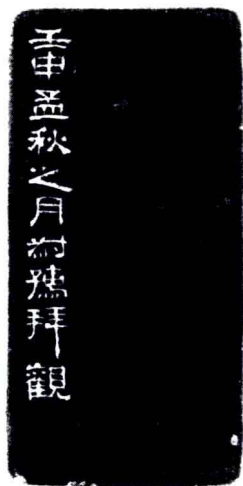 壬申孟秋之月拜觀